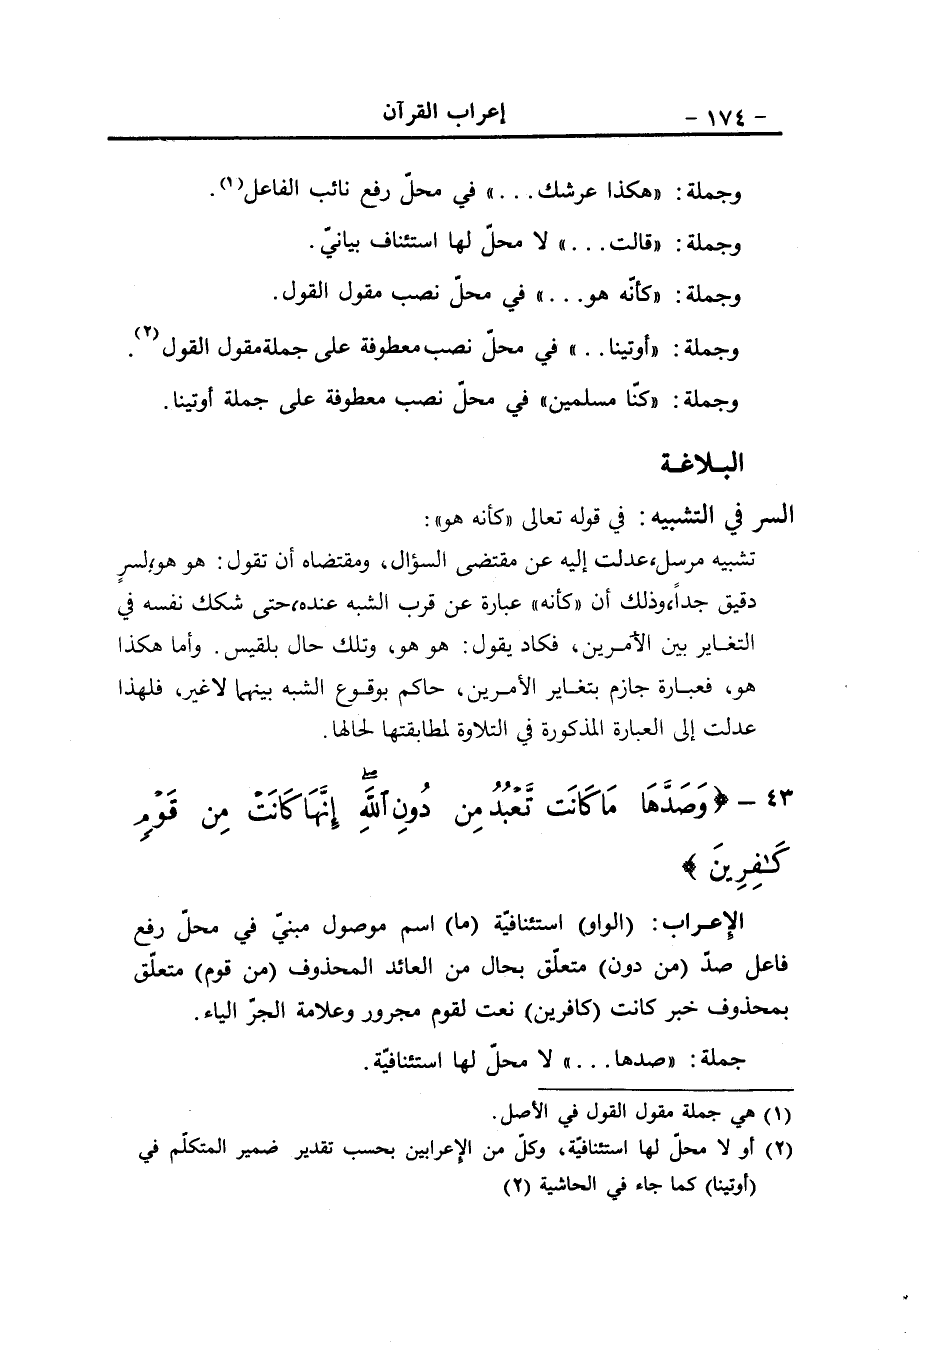 - ١٧٤ - إعراب القرآن
وجملة: «هكذا عرشك...» في محلّ رفع نائب الفاعل(١).
وجملة: «قالت...» لا محلّ لها استئناف بيانيّ.
وجملة: «كأنّه هو...» في محلّ نصب مقول القول.
وجملة: «أوتينا..» في محلّ نصب معطوفة على جملة مقول القول(٢).
وجملة: «كنّا مسلمين» في محلّ نصب معطوفة على جملة أوتينا.
البـلاغـة
السر في التشبيه: في قوله تعالى «كأنه هو»:
تشبيه مرسل، عدلت إليه عن مقتضى السؤال، ومقتضاه أن تقول: هو هو، لسرٍ
دقيق جداً، وذلك أن «كأنه» عبارة عن قرب الشبه عنده، حتى شكك نفسه في
التغـاير بين الأمـرين، فكاد يقول: هو هو، وتلك حال بلقيس. وأما هكذا
هو، فعبـارة جازم بتغـاير الأمـرين، حاكم بوقـوع الشبه بينها لاغير، فلهذا
عدلت إلى العبارة المذكورة في التلاوة لمطابقتها لحالها.
٤٣ - ﴿وَصَدَّهَا مَا كَانَت تَّعْبُدُ مِن دُونِ ٱللَّهِۖ إِنَّهَا كَانَتْ مِن قَوْمٍ
كَـٰفِرِينَ﴾
الإعـراب: (الواو) استئنافيّة (ما) اسم موصول مبنيّ في محلّ رفع
فاعل صدّ (من دون) متعلّق بحال من العائد المحذوف (من قوم) متعلّق
بمحذوف خبر كانت (كافرين) نعت لقوم مجرور وعلامة الجرّ الياء.
جملة: «صدها...» لا محلّ لها استئنافيّة.
(١) هي جملة مقول القول في الأصل.
(٢) أو لا محلّ لها استئنافيّة، وكلّ من الإعرابين بحسب تقدير ضمير المتكلّم في
(أوتينا) كما جاء في الحاشية (٢)